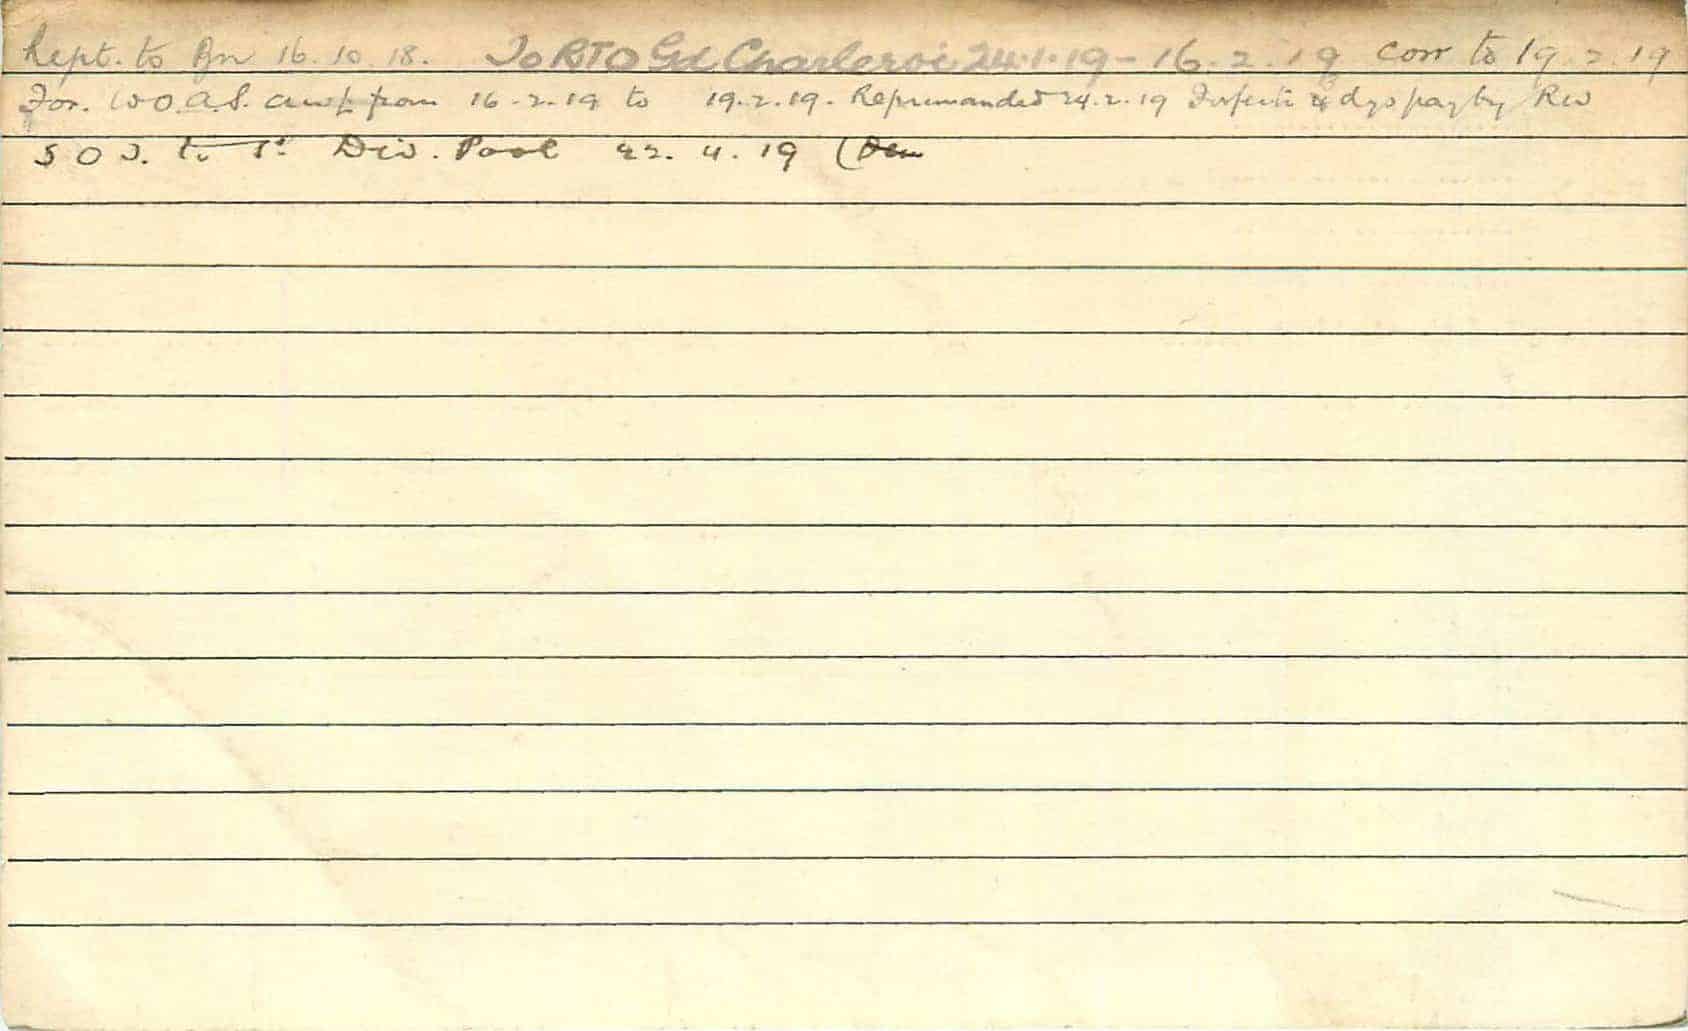 Rept. to Bn 16.10.18. To RTO Gd Charleroi 24.1.19 - 16.2.19 corr to 19.2.19
For. W.O.A.S. awol from 16-2-19 to 19.2.19. Reprimanded 24.2.19 Forfeits 4 dys pay by RW
S O S. to 1st Div. Pool 22.4.19 (Dem